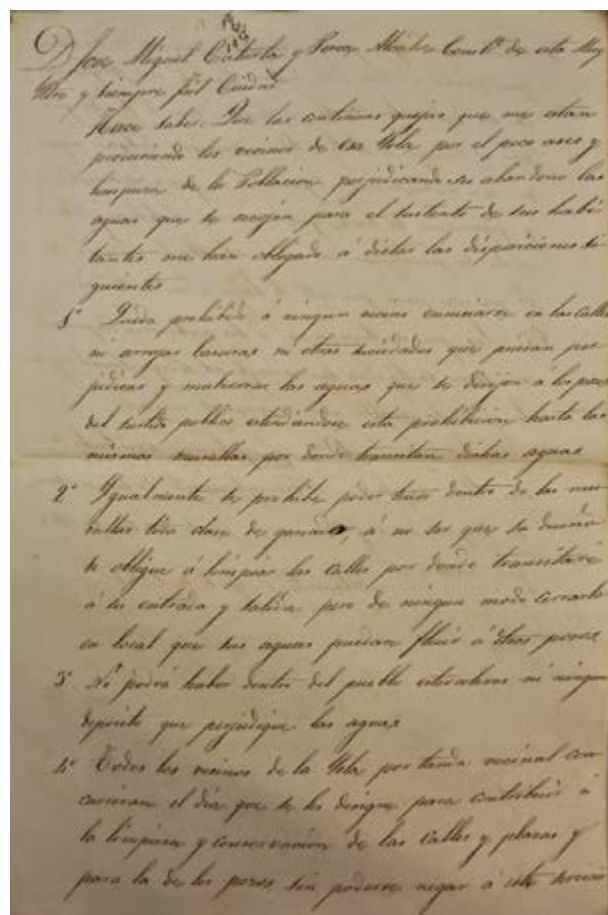 Dn Jose Miguel Caturla y Perez Alcalde Constl. de esta Muy
Iltre y siempre fiel Ciudad
Hace saber: Que las continuas quejas que me estan
produciendo los vecinos de esa Isla por el poco aseo y
limpieza de la Poblacion, perjudicando su abandono las
aguas que se recojen para el sustento de sus habi
tantes me han obligado á dictar las disposiciones si
guientes
1ª Queda prohibido á ningun vecino en las calles
ni arrojar basuras ni otras suciedades que puedan per
judicar y malear las aguas que se dirijen á los pozos
del surtido publico estendiendose esta prohibicion hasta las
mismas murallas por donde transitan dichas aguas
2ª Ygualmente se prohibe poder tener dentro de las mu
rallas toda clase de ganado, á no ser que su dueño
se obligue á limpiar las calles por donde transitare
á su entrada y salida, pero de ningun modo cerrarlo
en local que sus aguas puedan fluir á dhos pozos
3ª No podrá haber dentro del pueblo estercoleros ni ningun
deposito que perjudique las aguas
4ª Todos los vecinos de la Isla por tanda vecinal con
curriran el dia que se les designe para contribuir á
la limpieza y conservacion de las calles y plazas y
para la de los pozos, sin poderse negar á este servicio